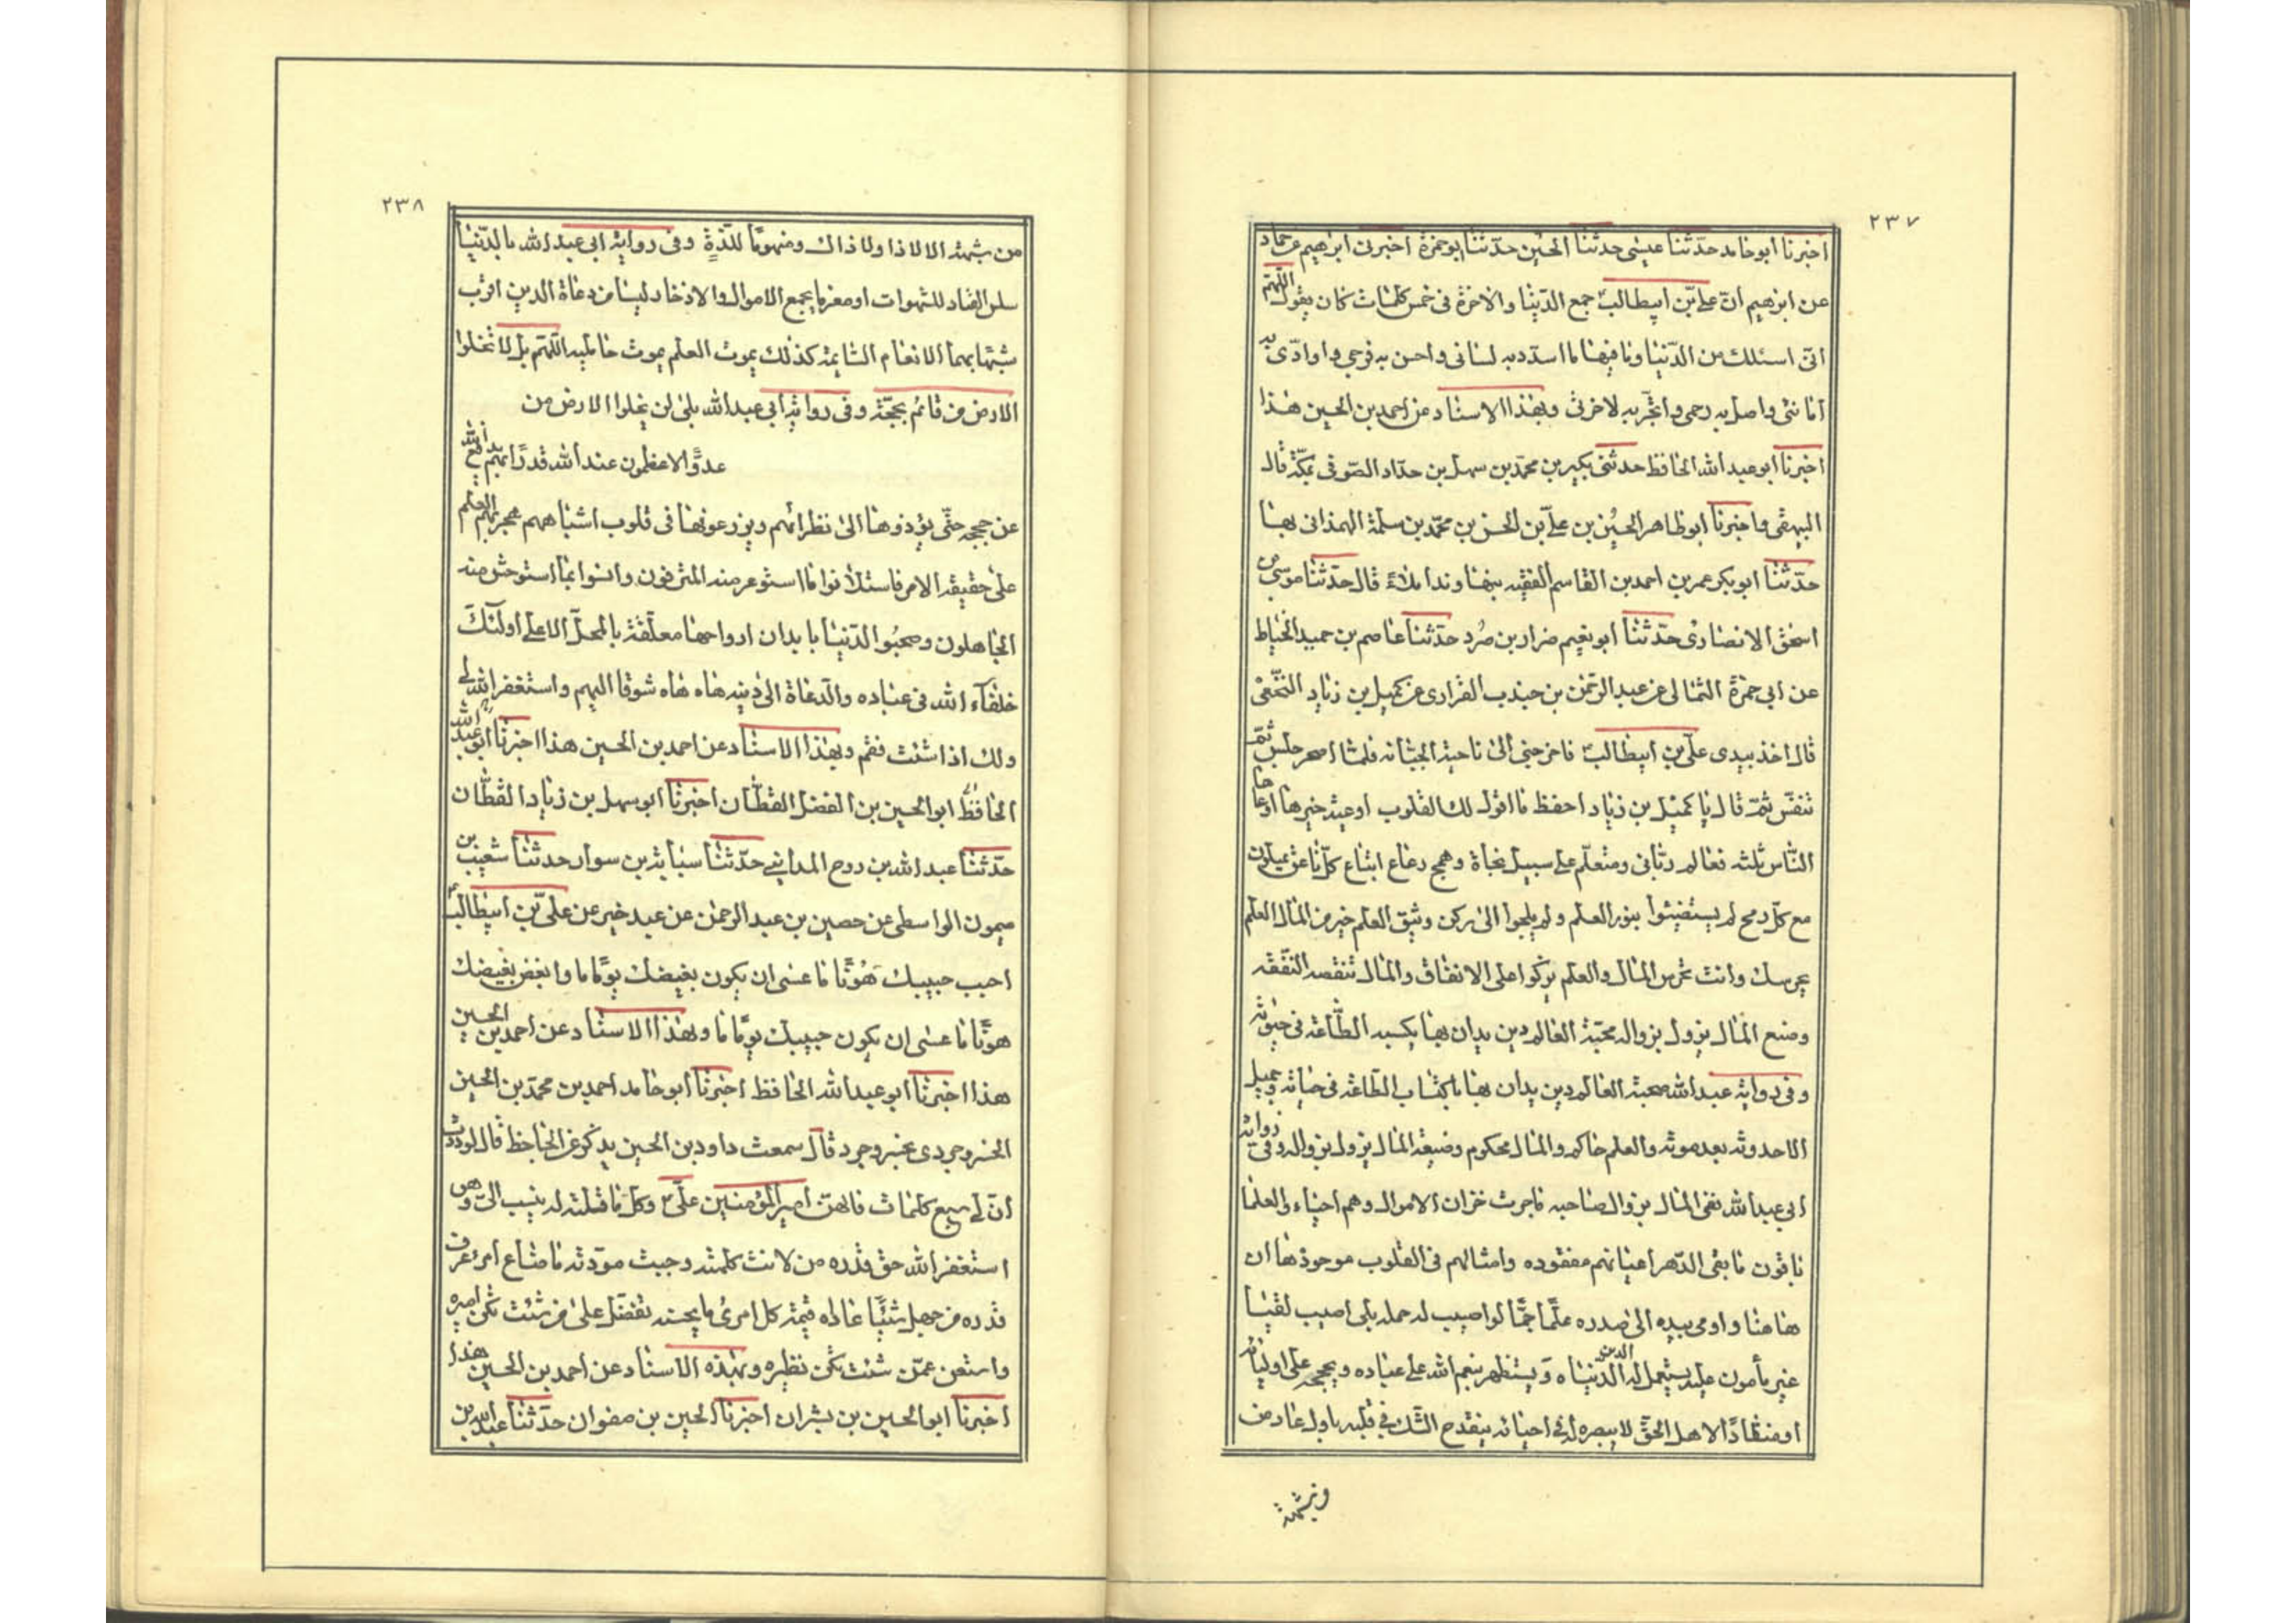 ٢٣٧
اخبرنا ابو حامد حدّثنا عيسى حدثنا الحسين حدّثنا ابو حمزة اخبرنى ابراهيم عن حماد
عن ابراهيم انّ على بن ابيطالب جمع الدّنيا والاخرة فى خمس كلمات كان يقول اللّهمّ
انّى اسئلك من الدّنيا وما فيها ما اسدّد به لسانى واحصن به فرجى واوادّى به
امانتى واصل به رحمى واتّجر به لاخرتى وبهذا الاسناد عن احمد بن الحسين هذا
اخبرنا ابو عبد الله الحافظ حدثنى بكير بن محمّد بن سهل بن حدّاد الصّوفى بمكّة قال
البيهقى واخبرنا ابو طاهر الحسين بن علىّ بن الحسن بن محمّد بن سلمة الهمذانى بها
حدّثنا ابو بكر عمر بن احمد بن القاسم الفقيه بنهاوند املاءً قال حدّثنا موسى بن
اسحق الانصارى حدّثنا ابو نعيم ضرار بن صُرد حدّثنا عاصم بن حميد الخياط
عن ابى حمزة الثمالى عن عبد الرّحمن بن جندب الفزارى عن كميل بن زياد النّخعى
قال اخذ بيدى على بن ابيطالب فاخرجنى الى ناحية الجبّانه فلمّا اصحر جلس ثمّ
تنفّس ثمّ قال يا كميل بن زياد احفظ ما اقول لك القلوب اوعية خيرها اوعاها
النّاس ثلثه فعالم ربّانى ومتعلّم على سبيل نجاة وهمج رعاع اتباع كلّ ناعق يميلون
مع كلّ ريح لم يستضيئوا بنور العلم ولم يلجوا الى ركن وثيق العلم خير من المال العلم
يحرسك وانت تحرس المال والعلم يزكوا على الانفاق والمال تنقصه النّفقه
وصنع المال يزول بزواله محبّة العالم دين يدان بها يكسبه الطّاعة فى حيوته
وفى رواية عبد الله صحبة العالم دين يدان بها باكتساب الطّاعة فى حياته وجميل
الاحدوثه بعد موته والعلم حاكم والمال محكوم وضيعة المال يزول بزواله وفى رواية
ابى عبد الله نفى المال بزوال صاحبه ماجرت خزان الاموال وهم احياء والعلما
باقون ما بقى الدّهر اعيانهم مفقوده وامثالهم فى القلوب موجودة ها ان
هاهنا واومى بيده الى صدره علمًا جمًّا لو اصيب له حمله بلى اصيب لقينا
غير مأمون عليه يستعمل اله الدين الدّنياه ويستظهر بنعم الله على عباده وبحججه على اوليائه
او منقادًا لاهل الحقّ لا يبصره له فى احيائه ينقدح الشّك فى قلبه باول عارض من
وشبهة
٢٣٨
من شبهة الا لا ذا ولا ذاك ومنهومًا للذّةٍ وفى رواية ابى عبد الله بالدّنيا
سلس القياد للشهوات او مغرما بجمع الاموال والادخار ليسا من دعاة الدين اقرب
شبها بهما الانعام السّائمة كذلك يموت العلم بموت حامليه اللّهمّ بلى لا تخلوا
الارض من قائم بحجّة وفى رواية ابى عبد الله بلى لن يخلوا الارض من
عددًا الاعظمون عند الله قدرًا بهم يدفع الله
عن حججه حتّى يؤدوها الى نظرائهم ويزرعونها فى قلوب اشباههم هجر بهم العلم
على حقيقة الامر فاستلانوا ما استوعر منه المترفون وانسوا بما استوحش منه
الجاهلون وصحبُوا الدّنيا بابدان ارواحها معلّقة بالمحلّ الاعلى اولئك
خلفآء الله فى عباده والدّعاة الى دينه هاه هاه شوقا اليهم واستغفر الله لى
ولك اذا شئت فقم وبهذا الاسناد عن احمد بن الحسين هذا اخبرنا ابو عبد الله
الحافظ ابو الحسين بن الفضل القطّان اخبرنا ابو سهل بن زياد القطّان
حدّثنا عبد الله بن روح المداينى حدّثنا سبابة بن سوار حدثنا شعيب بن
ميمون الواسطى عن حصين بن عبد الرحمن عن عبد خير عن علىّ بن ابيطالب
احبب حبيبك هَوْنًا ما عسى ان يكون بغيضك يومًا ما وابغض بغيضك
هونًا ما عسى ان يكون حبيبك يومًا ما وبهذا الاسناد عن احمد بن الحسين
هذا اخبرنا ابو عبد الله الحافظ اخبرنا ابو حامد احمد بن محمّد بن الحسين
الخسروجردى بخسروجرد قال سمعت داود بن الحسين يذكر عن الجاحظ قال لوددت
انّ لى سبع كلمات قالهنّ امير المؤمنين علىّ وكل ما قلته لم ينسب الىّ وهى
استغفر الله حق قدره من لانت كلمته وجبت مودّته ما ضاع امرء عرف
قدره من جهل شيئًا عاداه قيمة كل امرئ ما يحسنه تفضّل على من شئت تكن اميره
واستغن عمّن شئت تكن نظيره وبهذه الاسناد عن احمد بن الحسين هذا
اخبرنا ابو الحسين بن بشران اخبرنا الحسين بن صفوان حدّثنا عبد الله بن